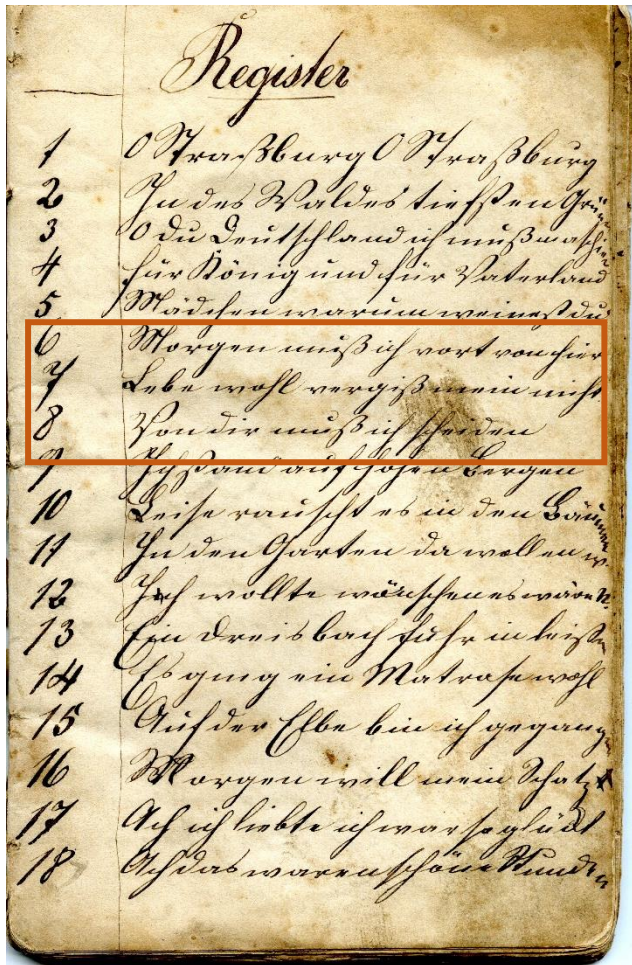 Register
1 O Straßburg O Straßburg
2 In des Waldes tiefsten Grün
3 O du Deutschland ich muß maschir
4 für König und für Vaterland
5 Mädchen warum weinest du
6 Morgen muß ich vort von hier
7 Lebe wohl vergiß mein nicht
8 Von dir muß ich scheiden
9 Ich stand auf hohen Bergen
10 Leise rauscht es in den Bäumen
11 In den Garten da wollen w
12 Ich wollte wünschen es wäre N
13 Ein
14 Es ging ein Matrose wohl
15 Auf der Elbe bin ich gegang
16 Morgen will mein Schatz
17 Ach ich liebte ich war so glückl
18 Ach das waren schöne Stunden